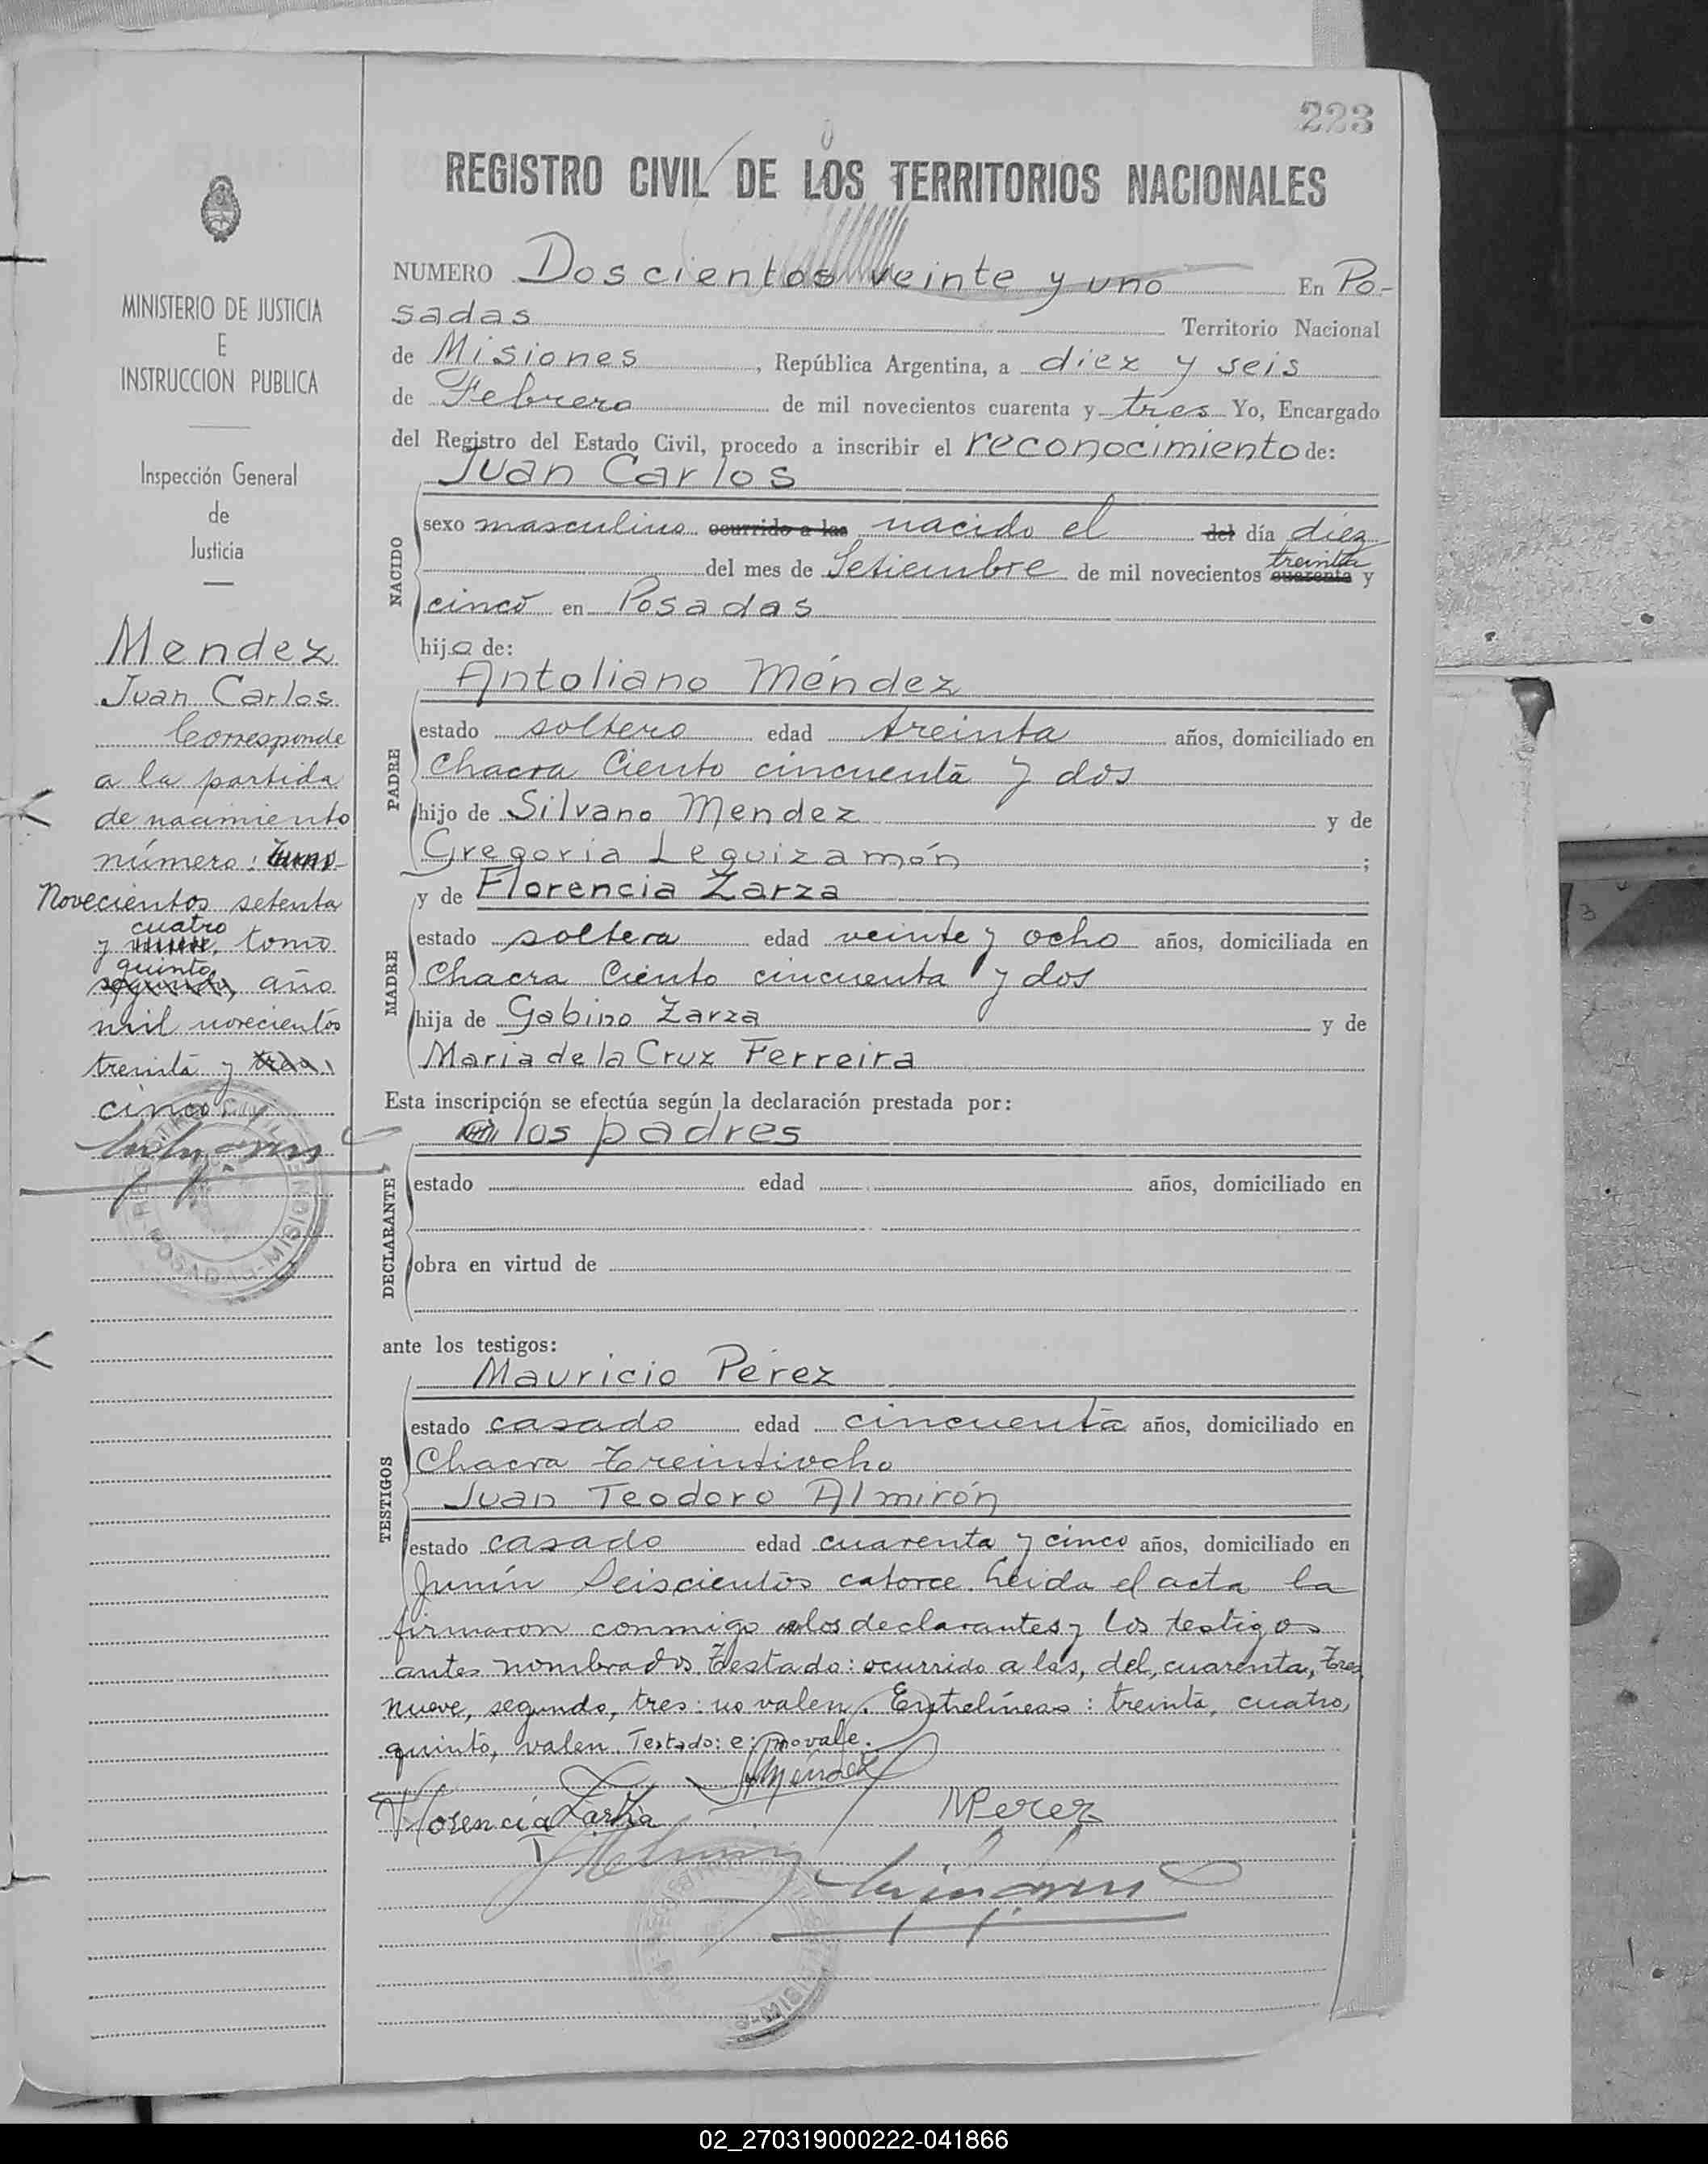 223
REGISTRO CIVIL DE LOS TERRITORIOS NACIONALES
NUMERO Doscientos veinte y uno En Po-
sadas Territorio Nacional
de Misiones, República Argentina, a diez y seis
de Febrero de mil novecientos cuarenta y tres Yo, Encargado
del Registro del Estado Civil, procedo a inscribir el reconocimiento de:
Juan Carlos
NACIDO
sexo masculino ocurrido a las nacido el del día diez
treinta
del mes de Setiembre de mil novecientos cuarenta y
cinco en Posadas
hijo de:
Antoliano Méndez
PADRE
estado soltero edad treinta años, domiciliado en
Chacra Ciento cincuenta y dos
hijo de Silvano Mendez y de
Gregoria Leguizamón;
y de Florencia Zarza
MADRE
estado soltera edad veinte y ocho años, domiciliada en
Chacra Ciento cincuenta y dos
hija de Gabino Zarza y de
Maria de la Cruz Ferreira
Esta inscripción se efectúa según la declaración prestada por:
los padres
DECLARANTE
estado edad años, domiciliado en
obra en virtud de
ante los testigos:
Mauricio Pérez
TESTIGOS
estado casado edad cincuenta años, domiciliado en
Chacra treintiocho
Juan Teodoro Almirón
estado casado edad cuarenta y cinco años, domiciliado en
Junín Seiscientos catorce. Leida el acta la
firmaron conmigo los declarantes y los testigos
antes nombrados. Testado: ocurrido a las, del, cuarenta, tres,
nueve, segundo, tres: no valen. Entrelíneas: treinta, cuatro,
quinto, valen. Testado: e: no vale.
Méndez
Florencia Zarza
MPerez
MINISTERIO DE JUSTICIA
E
INSTRUCCION PUBLICA
Inspección General
de
Justicia
Mendez
Juan Carlos
Corresponde
a la partida
de nacimiento
número:
Novecientos setenta
cuatro
y nueve, tomo
quinto
segundo, año
mil novecientos
treinta y tres
cinco.
POSADAS-MISIONES
02_270319000222-041866